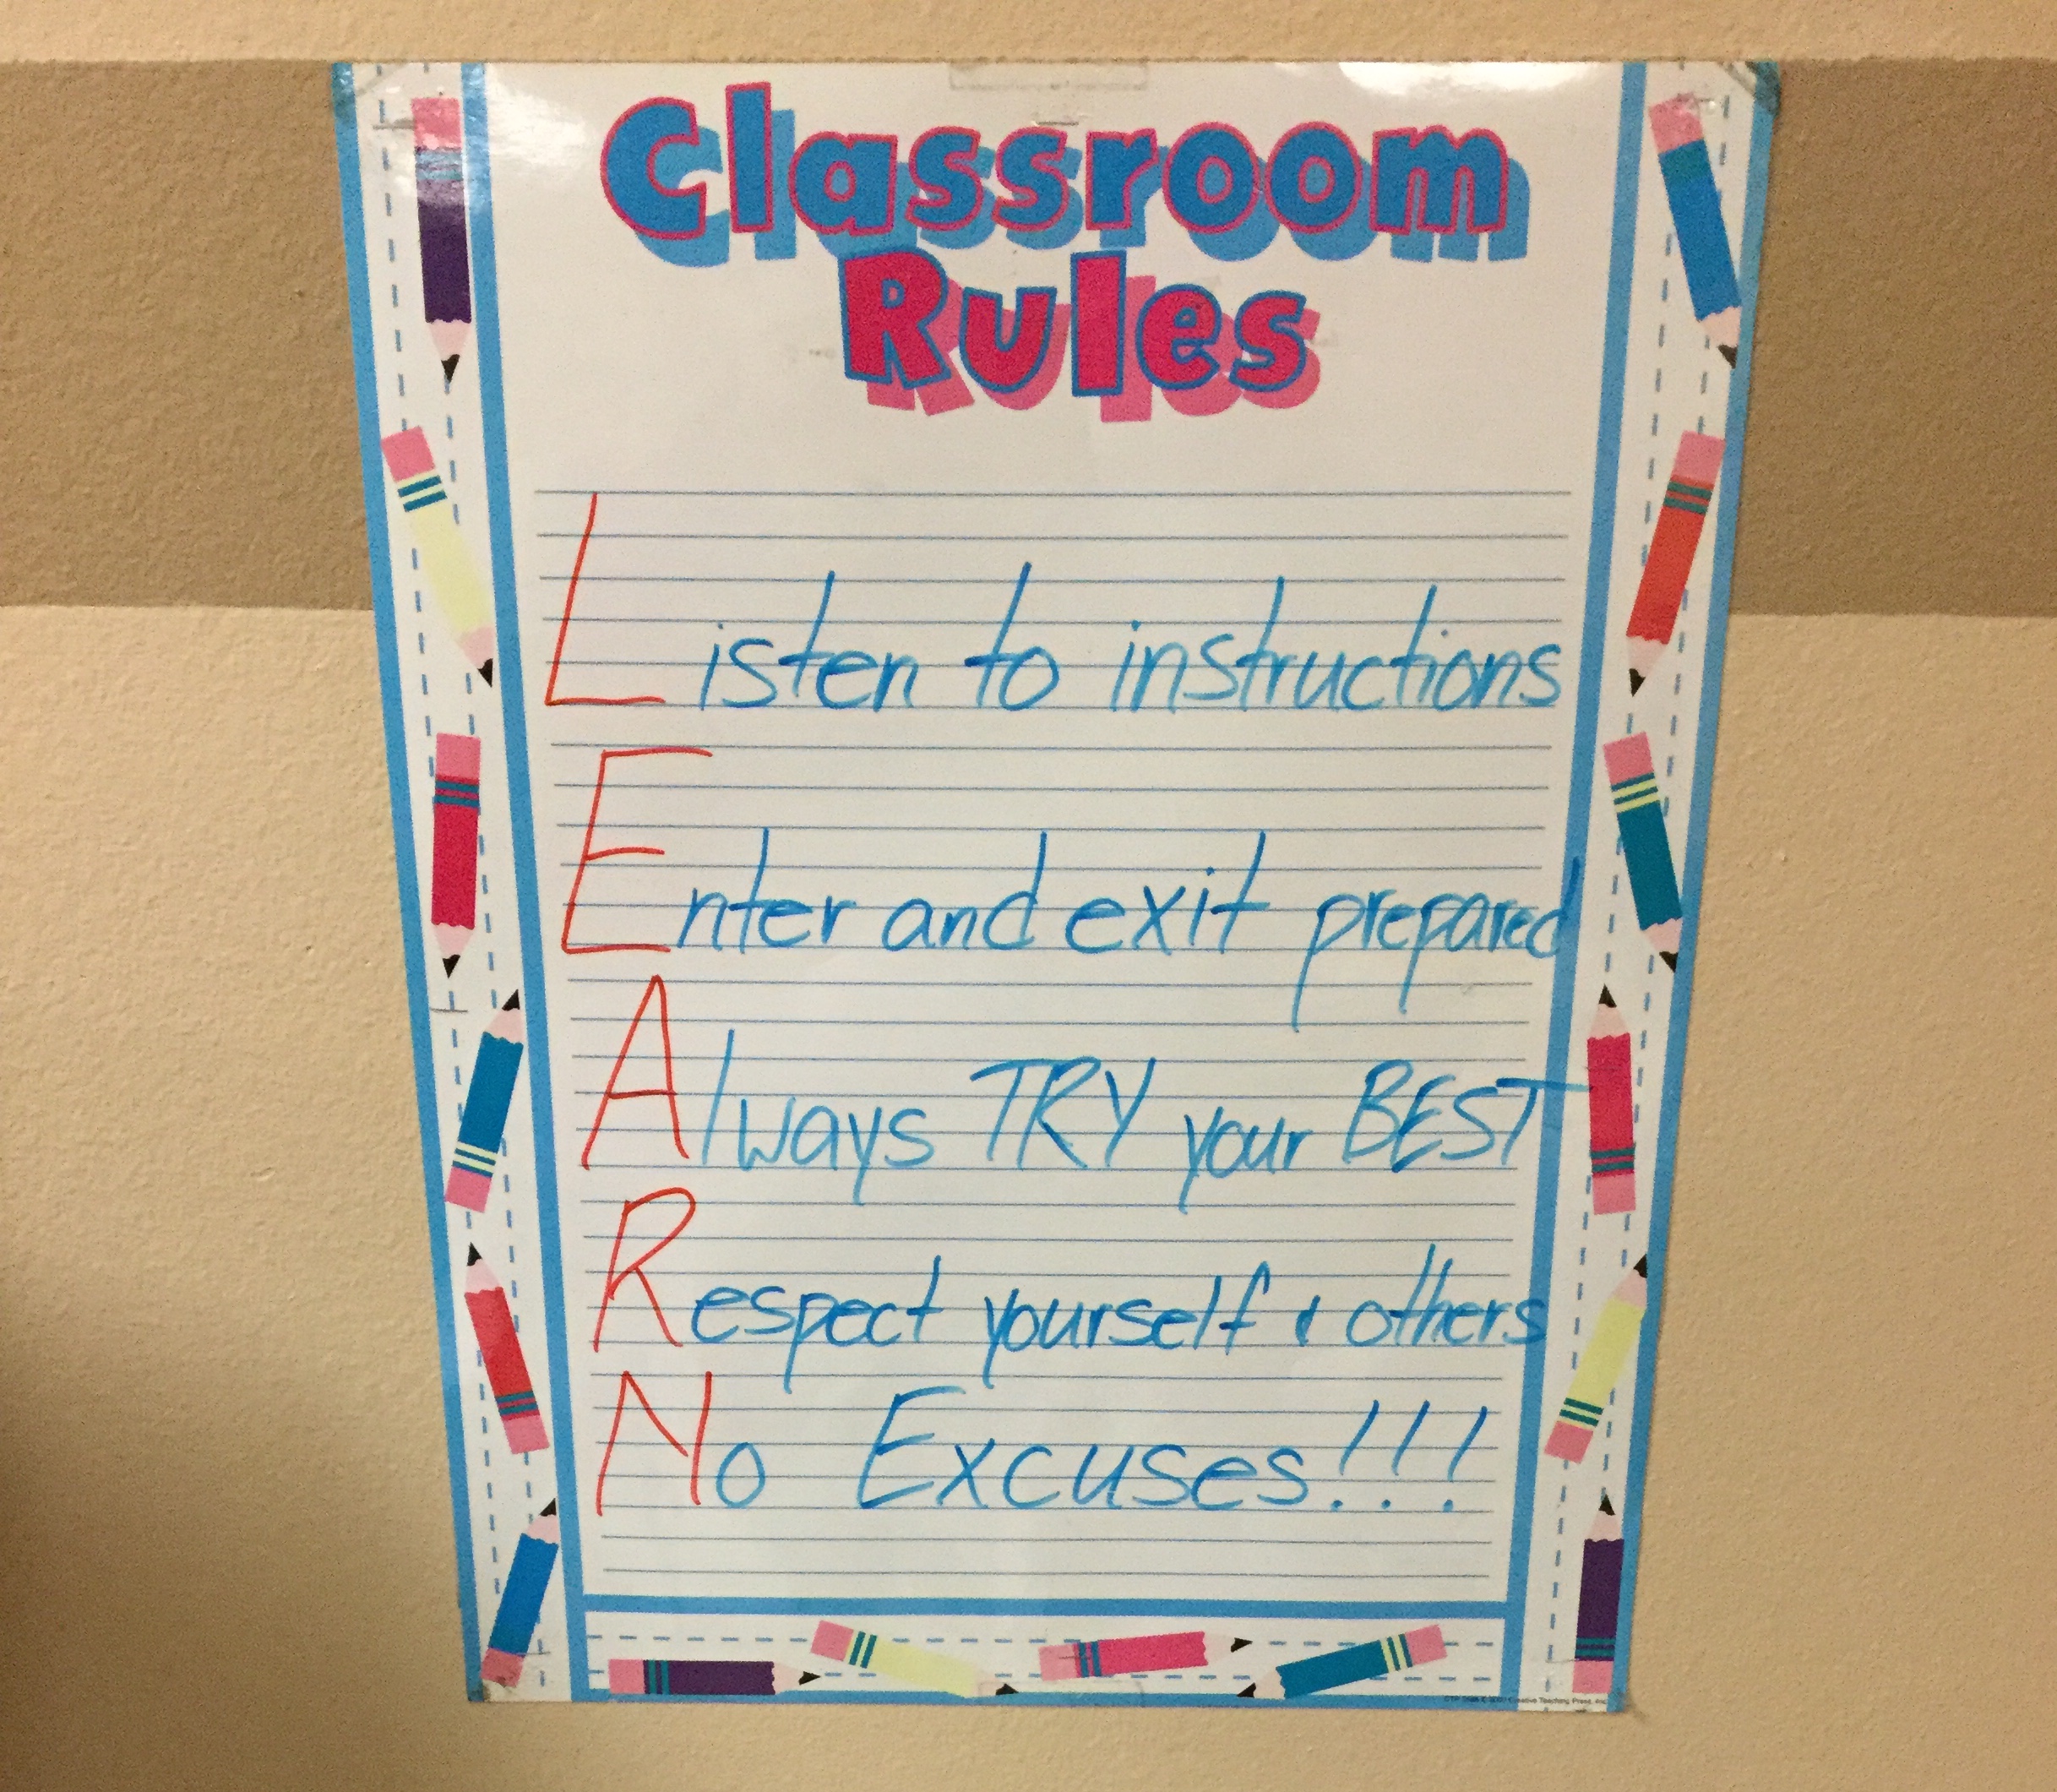 Classroom
Rules
Listen to instructions
Enter and exit prepared
Always TRY your BEST
Respect yourself & others
No Excuses!!!
Creative Teaching Press, Inc.